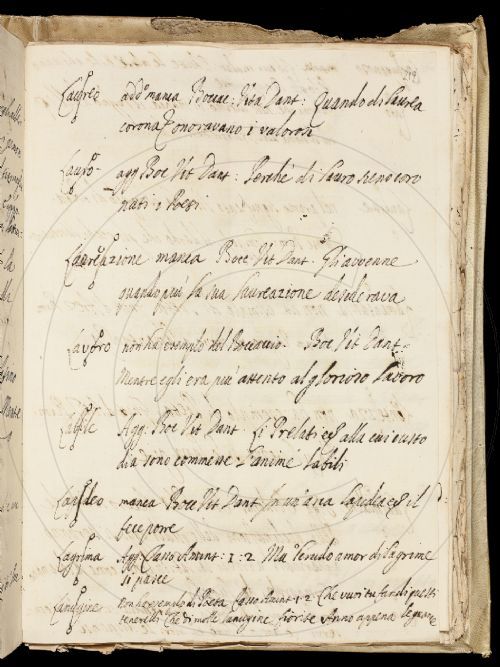 219
Laureo add.º manca Boccac: Vita Dant: Quando di laurea
corona onoravano i valorosi
Lauro- agg Boc Vit Dant: Perche di lauro sieno coro
nati i Poeti
Laureazione manca Bocc Vit Dant. Gli avvenne
quando più la sua laureazione desiderava
Lavoro non ha esemplo del Boccaccio. Boc Vit Dant.
Mentre egli era più attento al glorioso lavoro
Labile Agg. Boc Vit Dant. Li Prelati alla cui custo
dia sono commesse l'anime labili
Lapideo manca Boc Vit Dant In un'arca lapidea il
fece porre
Lagrima Agg Tasso Amint: 1: 2 Ma 'l crudo amor di lagrime
si pasce
Lanugine non ha esemplo di Poeta Tasso Amint 1. 2 Che
tenerelli Che di molle lanugine fiorite Anno appena le guance